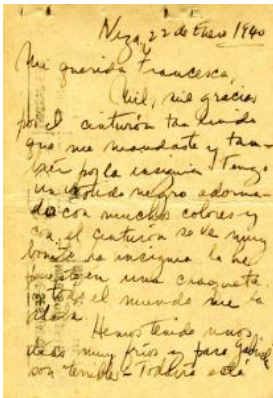 Niza, 22 de Enero 1940
Mi querida Francesca,
Mil, mil gracias
por el cinturón tan lindo
que me mandaste y tam-
bién por la insignia. Tengo
un vestido negro adorna-
do con muchos colores y
con el cinturón se ve muy
bonito. La insignia la he
puesto en una chaqueta
todo el mundo me la
Hemos tenido unos
días muy fríos y para Gabriel
son terribles - Todavía está